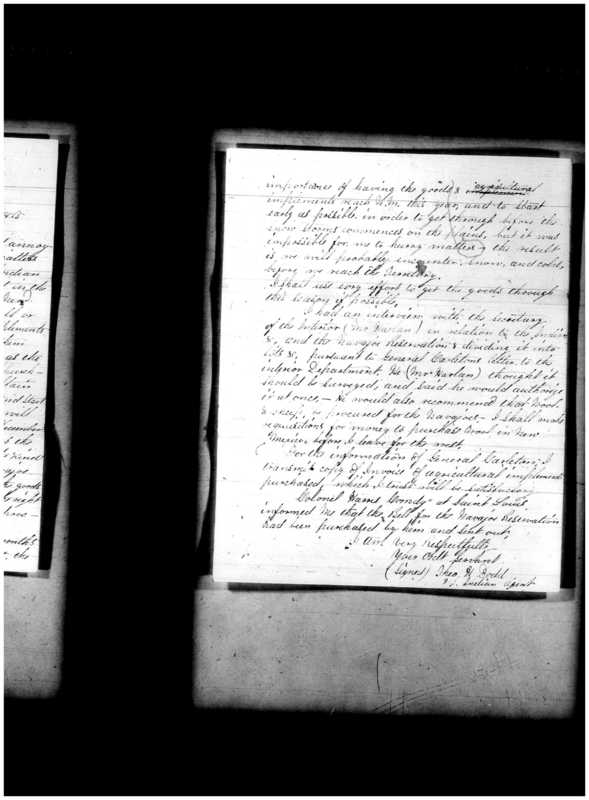 importance of having the goods & agricultural
implements reach N.M. this year, and to start
early as possible in order to get through before the
snow storms commences on the plains, but it was
impossible for me to hurry matters, the result
is we will probably incounter snow, and colds,
before we reach the Territory.
I shall use evry effort to get the goods through
this season if possible.
I had an interview with the Secretary
of the Interior (Mr Harlan) in relation to the
&c, and the Navajoe Reservation & dividing it into
lots &c, pursuant to General Carletons letter to the
interior Department. He (Mr Harlan) thought it
should be surveyed, and said he would authorize
it at once,— He would also recommend that Wool
& sheep, be procured for the Navajoes— I shall make
requisitions for money to purchase Wool in New
Mexico, before I leave for the west.
For the information of General Carleton, I
transmit copy of Invois of agricultural implements
purchased, which I trust will be satisfactory
Colonel Hams at Saint Louis,
informed me that the Bell for the Navajoe Reservation
had been purchased by him and sent out,
I Am Very respectfully
Your Obdt Servant
(Signed) Theo. H. Dodd
Indian Agent
cannoy
Indian
it in the
or
as the
and start
will
December
the
the goods
right
months
the